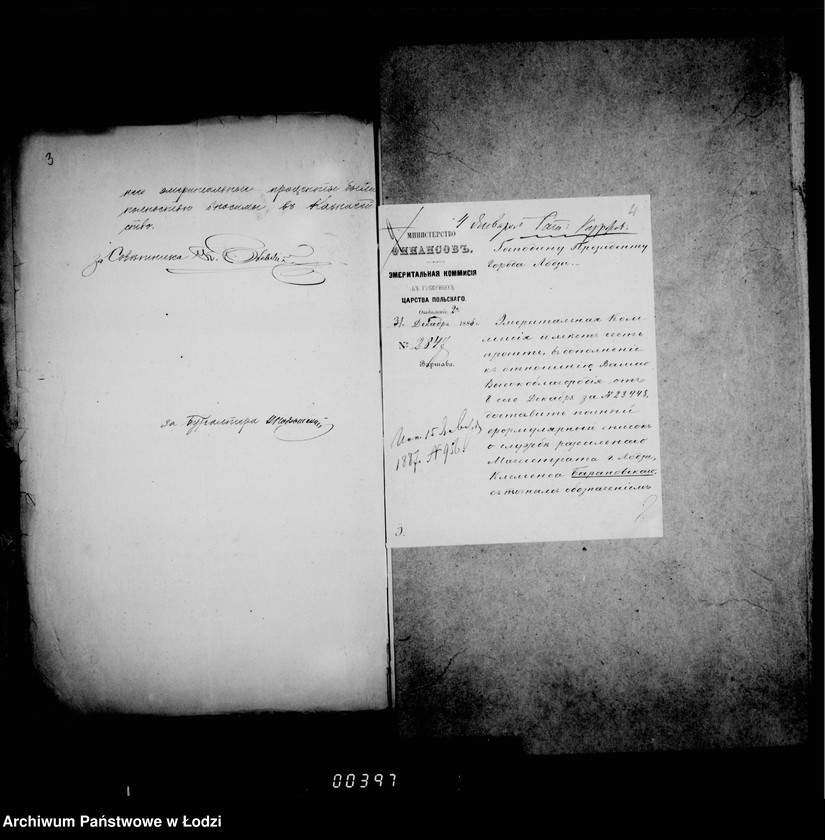 3
ные эмеритальные проценты были
полностью вносимы въ Казначей
ство.
за Совѣтника
за Бухгалтера
4
МИНИСТЕРСТВО
ФИНАНСОВЪ.
ЭМЕРИТАЛЬНАЯ КОММИСІЯ
ВЪ ГУБЕРНІЯХЪ
ЦАРСТВА ПОЛЬСКАГО.
Отдѣленіе 2е
31 Декабря 1886 г.
№ 2847
Варшава.
15
1887 № 936
4 Января
Господину Президенту
города Лодзи.
Эмеритальная Ком
мисія имѣетъ честь
просить, въ дополненіе
къ отношенію Вашего
Высокоблагородія отъ
8 сего Декабря за № 23448,
доставить полный
формулярный списокъ
о службѣ разсыльнаго
Магистрата г. Лодзи,
Клеменса Барановскаго,
съ точнымъ обозначеніемъ
2
3.
00397
Archiwum Państwowe w Łodzi